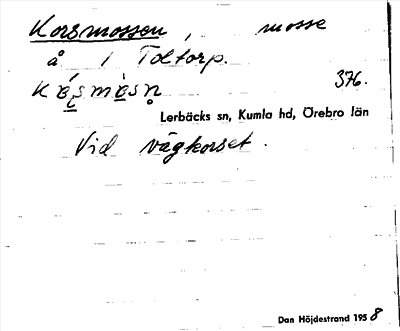 Korsmossen, mosse
å 1 Toltorp.
376.
Lerbäcks sn, Kumla hd, Örebro län
Vid vägkorset.
Dan Höjdestrand 1958